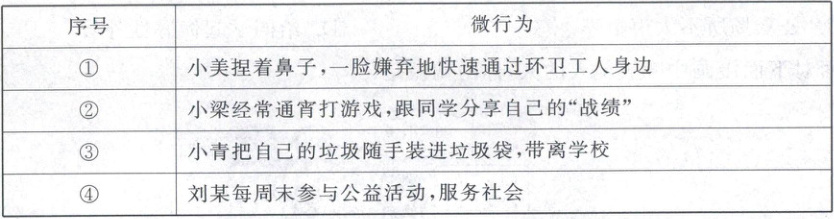 序号 微行为
① 小美捏着鼻子,一脸嫌弃地快速通过环卫工人身边
② 小梁经常通宵打游戏,跟同学分享自己的“战绩”
③ 小青把自己的垃圾随手装进垃圾袋,带离学校
④ 刘某每周末参与公益活动,服务社会